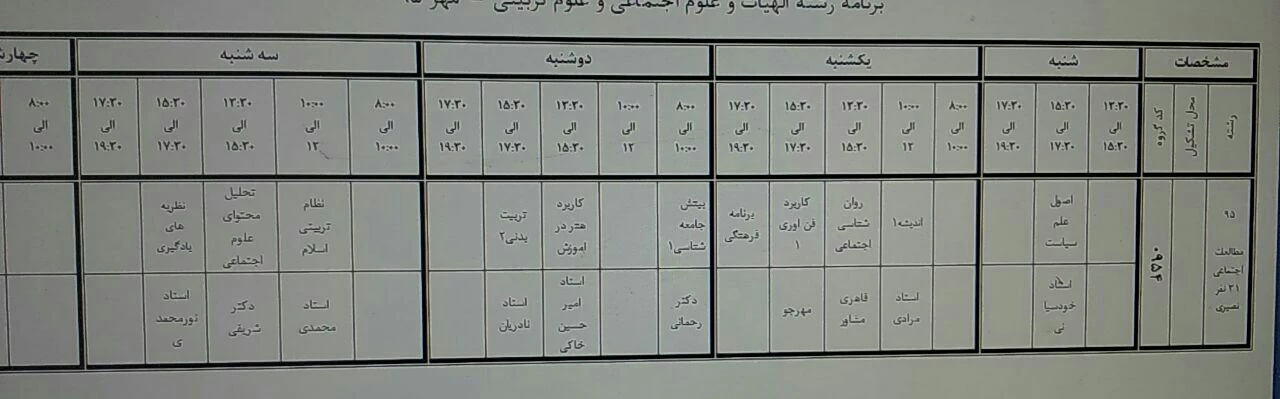 برنامه رشته الهیات و علوم اجتماعی و علوم تربیتی - مهر ۹۵
مشخصات شنبه یکشنبه دوشنبه سه شنبه
رشته محل تشکیل کد گروه
۱۳:۳۰ الی ۱۵:۳۰
۱۵:۳۰ الی ۱۷:۳۰
۱۷:۳۰ الی ۱۹:۳۰
۸:۰۰ الی ۱۰:۰۰
۱۰:۰۰ الی ۱۲
۱۳:۳۰ الی ۱۵:۳۰
۱۵:۳۰ الی ۱۷:۳۰
۱۷:۳۰ الی ۱۹:۳۰
۸:۰۰ الی ۱۰:۰۰
۱۰:۰۰ الی ۱۲
۱۳:۳۰ الی ۱۵:۳۰
۱۵:۳۰ الی ۱۷:۳۰
۱۷:۳۰ الی ۱۹:۳۰
۸:۰۰ الی ۱۰:۰۰
۱۰:۰۰ الی ۱۲
۱۳:۳۰ الی ۱۵:۳۰
۱۵:۳۰ الی ۱۷:۳۰
۱۷:۳۰ الی ۱۹:۳۰
۸:۰۰ الی ۱۰:۰۰
۹۵
مطالعات
اجتماعی
۳۱ نفر
نصیری
۰۹۵۴
اصول
علم
سیاست
استاد
خودسیا
نی
اندیشه۱
استاد
مرادی
روان
شناسی
اجتماعی
قاهری
مشاور
کاربرد
فن اوری
۱
مهرجو
برنامه
فرهنگی
بینش
جامعه
شناسی۱
دکتر
رحمانی
کاربرد
هنر در
اموزش
استاد
امیر
حسین
خاکی
تربیت
بدنی۲
استاد
نادریان
نظام
تربیتی
اسلام
استاد
محمدی
تحلیل
محتوای
علوم
اجتماعی
دکتر
شریفی
نظریه
های
یادگیری
استاد
نورمحمد
ی